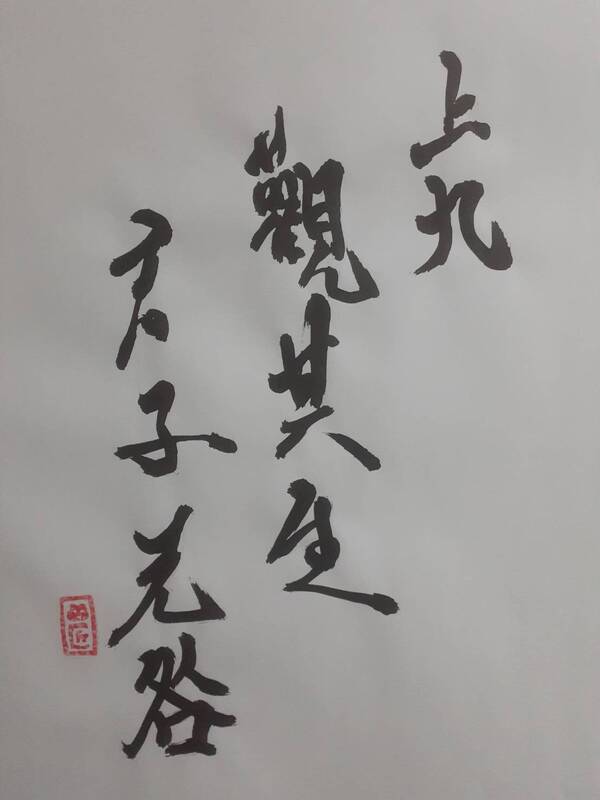 上九
觀其生
君子无咎